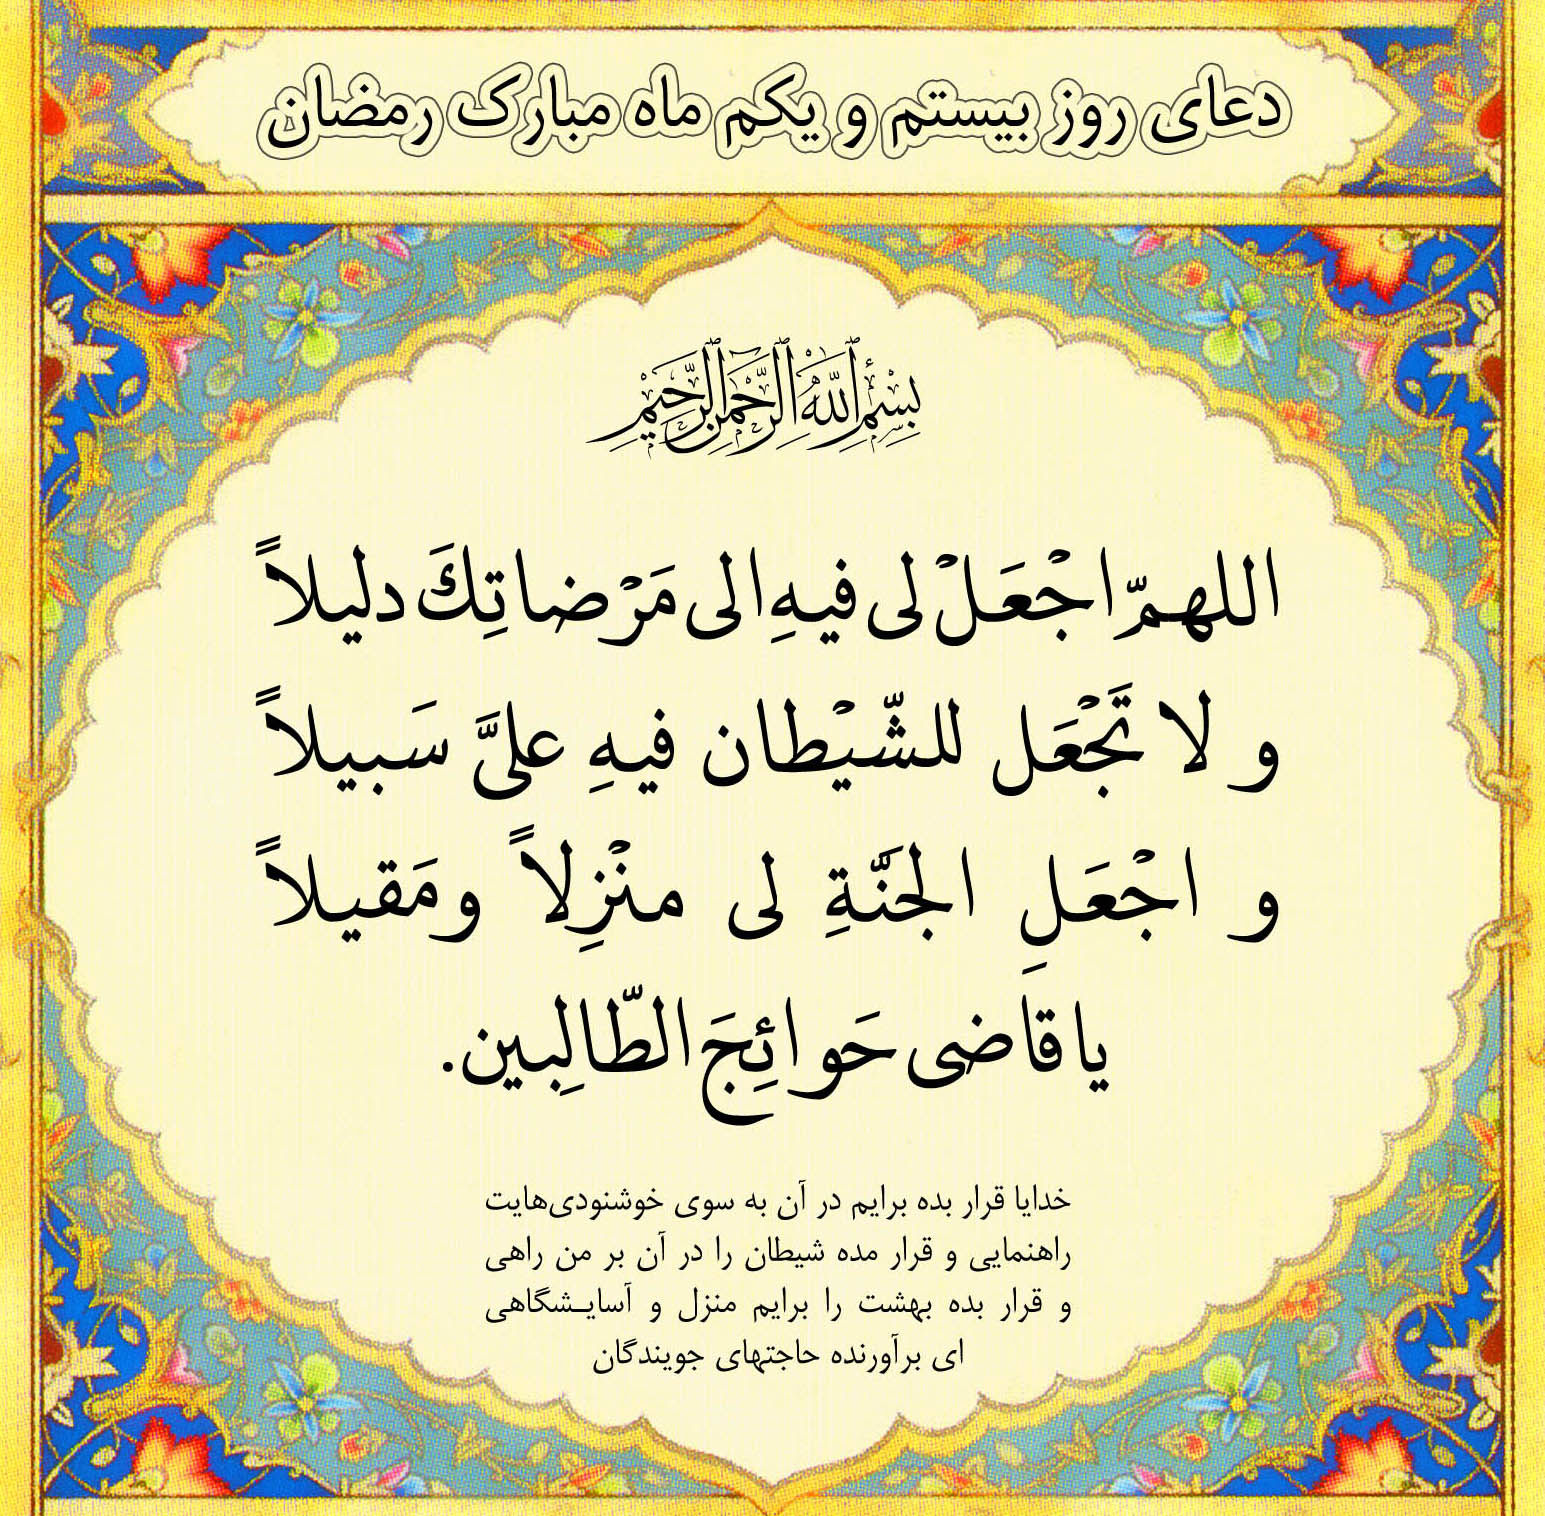 دعای روز بیستم و یکم ماه مبارک رمضان
بِسْمِ اللَّهِ الرَّحْمَٰنِ الرَّحِيمِ
اللهمّ اجْعَلْ لی فیهِ الی مَرْضاتِكَ دلیلاً
و لا تَجْعَل للشّیْطان فیهِ علیَّ سَبیلاً
و اجْعَلِ الجَنّةِ لی منْزِلاً ومَقیلاً
یا قاضی حَوائِجَ الطّالِبین.
خدایا قرار بده برایم در آن به سوی خوشنودی‌هایت
راهنمایی و قرار مده شیطان را در آن بر من راهی
و قرار بده بهشت را برایم منزل و آسایـشگاهی
ای برآورنده حاجتهای جویندگان